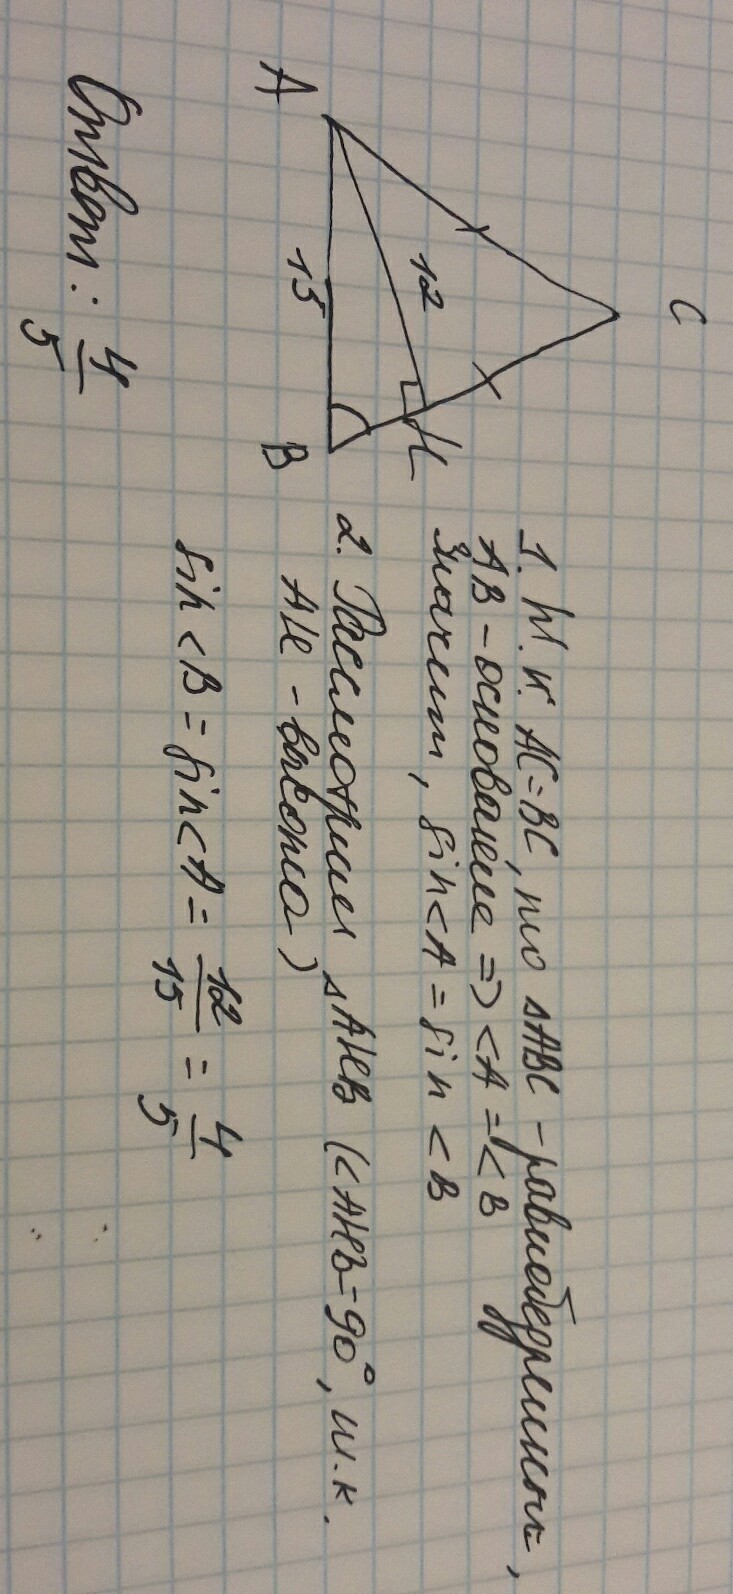 C
12
H
A
15
B
1. Т.к. AC=BC, то △ABC - равнобедренный,
AB - основание => <A = <B
Значит, sin<A = sin <B
2. Рассмотрим △AHB (<AHB=90°, т.к.
AH - высота)
sin <B = sin<A = 12/15 = 4/5
Ответ: 4/5